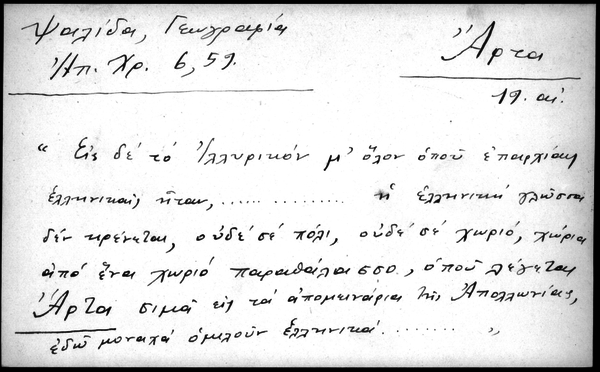 Ψαλίδα, Γεωγραφία
Ἠπ. Χρ. 6, 59.
Ἄρτα
19. αἰ.
“ Εἰς δέ τό Ἰλλυρικόν μ' ὅλον ὁποῦ ἐπαρχίαι
ἑλληνικαί, ἦταν, ................ ἡ ἑλληνική γλῶσσα
δέν κρένεται, οὐδέ σέ πόλι, οὐδέ σέ χωριό, χώρια
ἀπό ἕνα χωριό παραθάλασσο, ὁποῦ λέγεται
Ἄρτα σιμά εἰς τά ἀπομεινάρια τῆς Ἀπολλωνίας,
ἐδῶ μοναχά ὁμιλοῦν ἑλληνικά ........ „